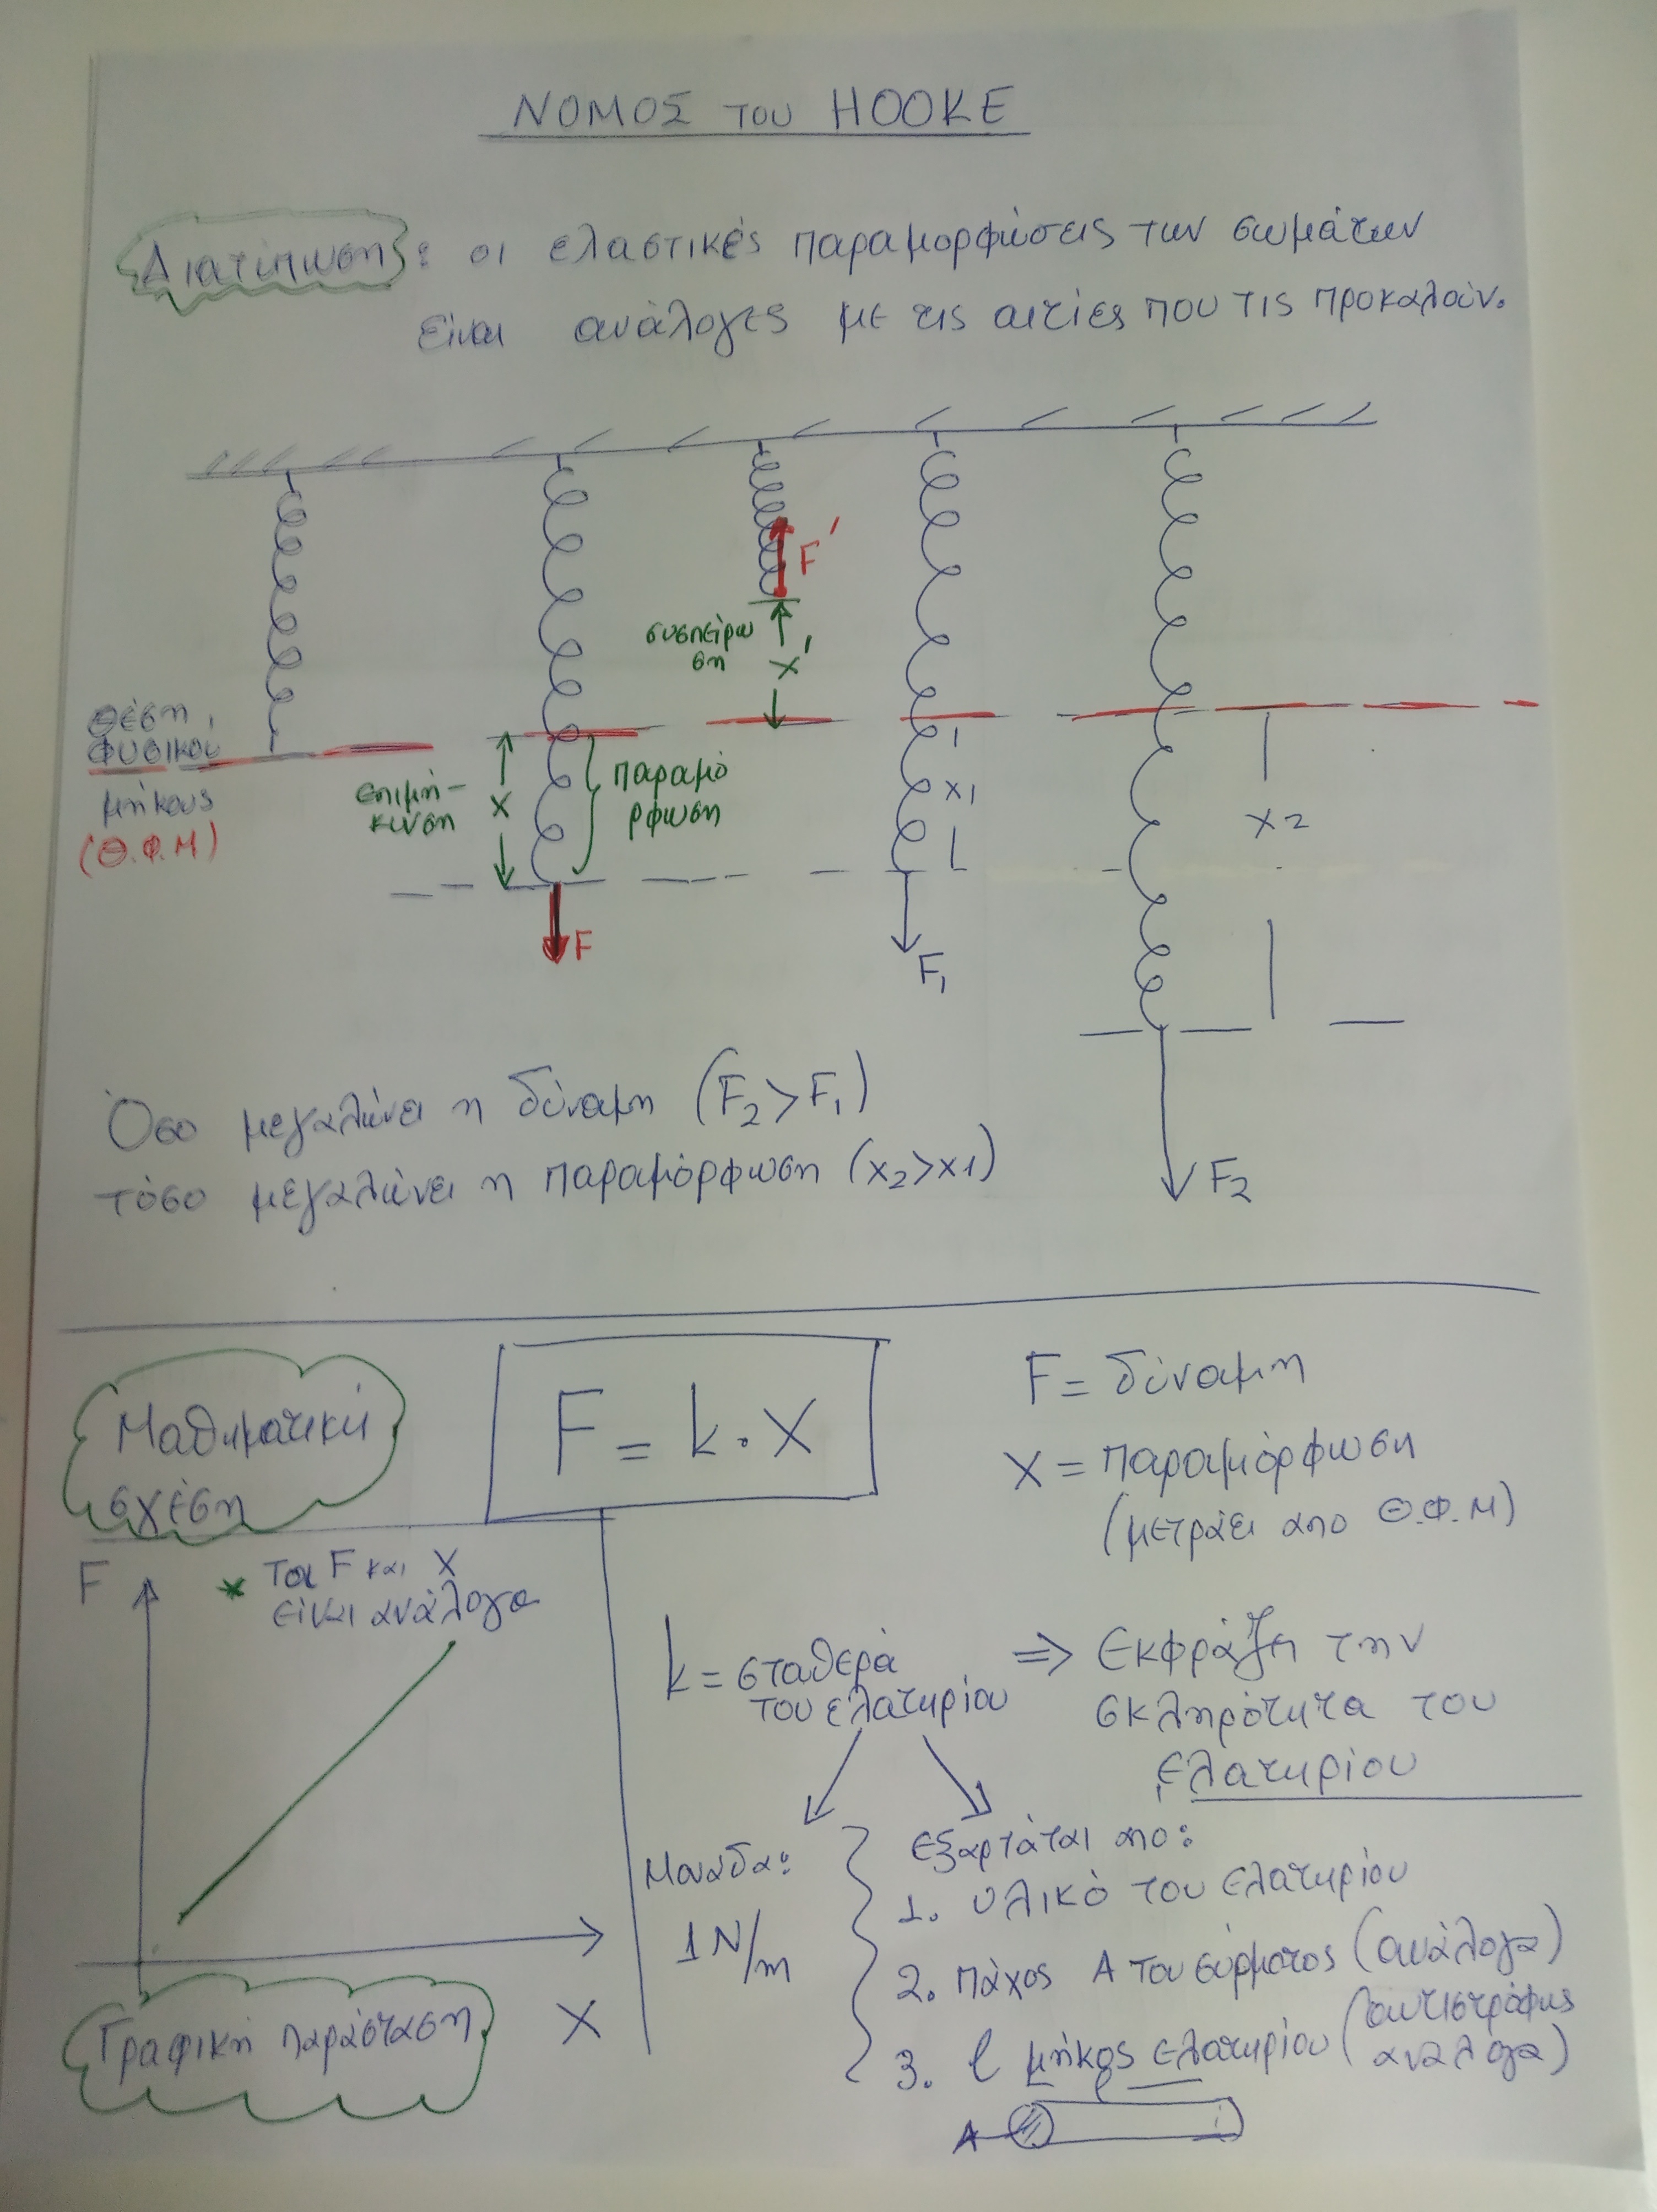 ΝΟΜΟΣ του HOOKE
Διατύπωση: οι ελαστικές παραμορφώσεις των σωμάτων
είναι ανάλογες με τις αιτίες που τις προκαλούν.
F'
συσπείρω
ση
x'
θέση
φυσικού
μήκους
(Θ.Φ.Μ)
επιμή-
κυνση
x
παραμό
ρφωση
x1
x2
F
F1
Όσο μεγαλώνει η δύναμη (F2>F1)
τόσο μεγαλώνει η παραμόρφωση (x2>x1)
F2
Μαθηματική
σχέση
F = k . x
F = δύναμη
x = παραμόρφωση
(μετράει απο Θ.Φ.Μ)
F
* Τα F και x
είναι ανάλογα
k = σταθερά
του ελατηρίου
⇒ Εκφράζει την
σκληρότητα του
ελατηρίου
Μονάδα:
1 N/m
εξαρτάται απο:
1. υλικό του ελατηρίου
2. πάχος Α του σύρματος (ανάλογα)
3. l μήκος ελατηρίου (αντιστρόφως
ανάλογα)
Γραφική παράσταση
x
l
A